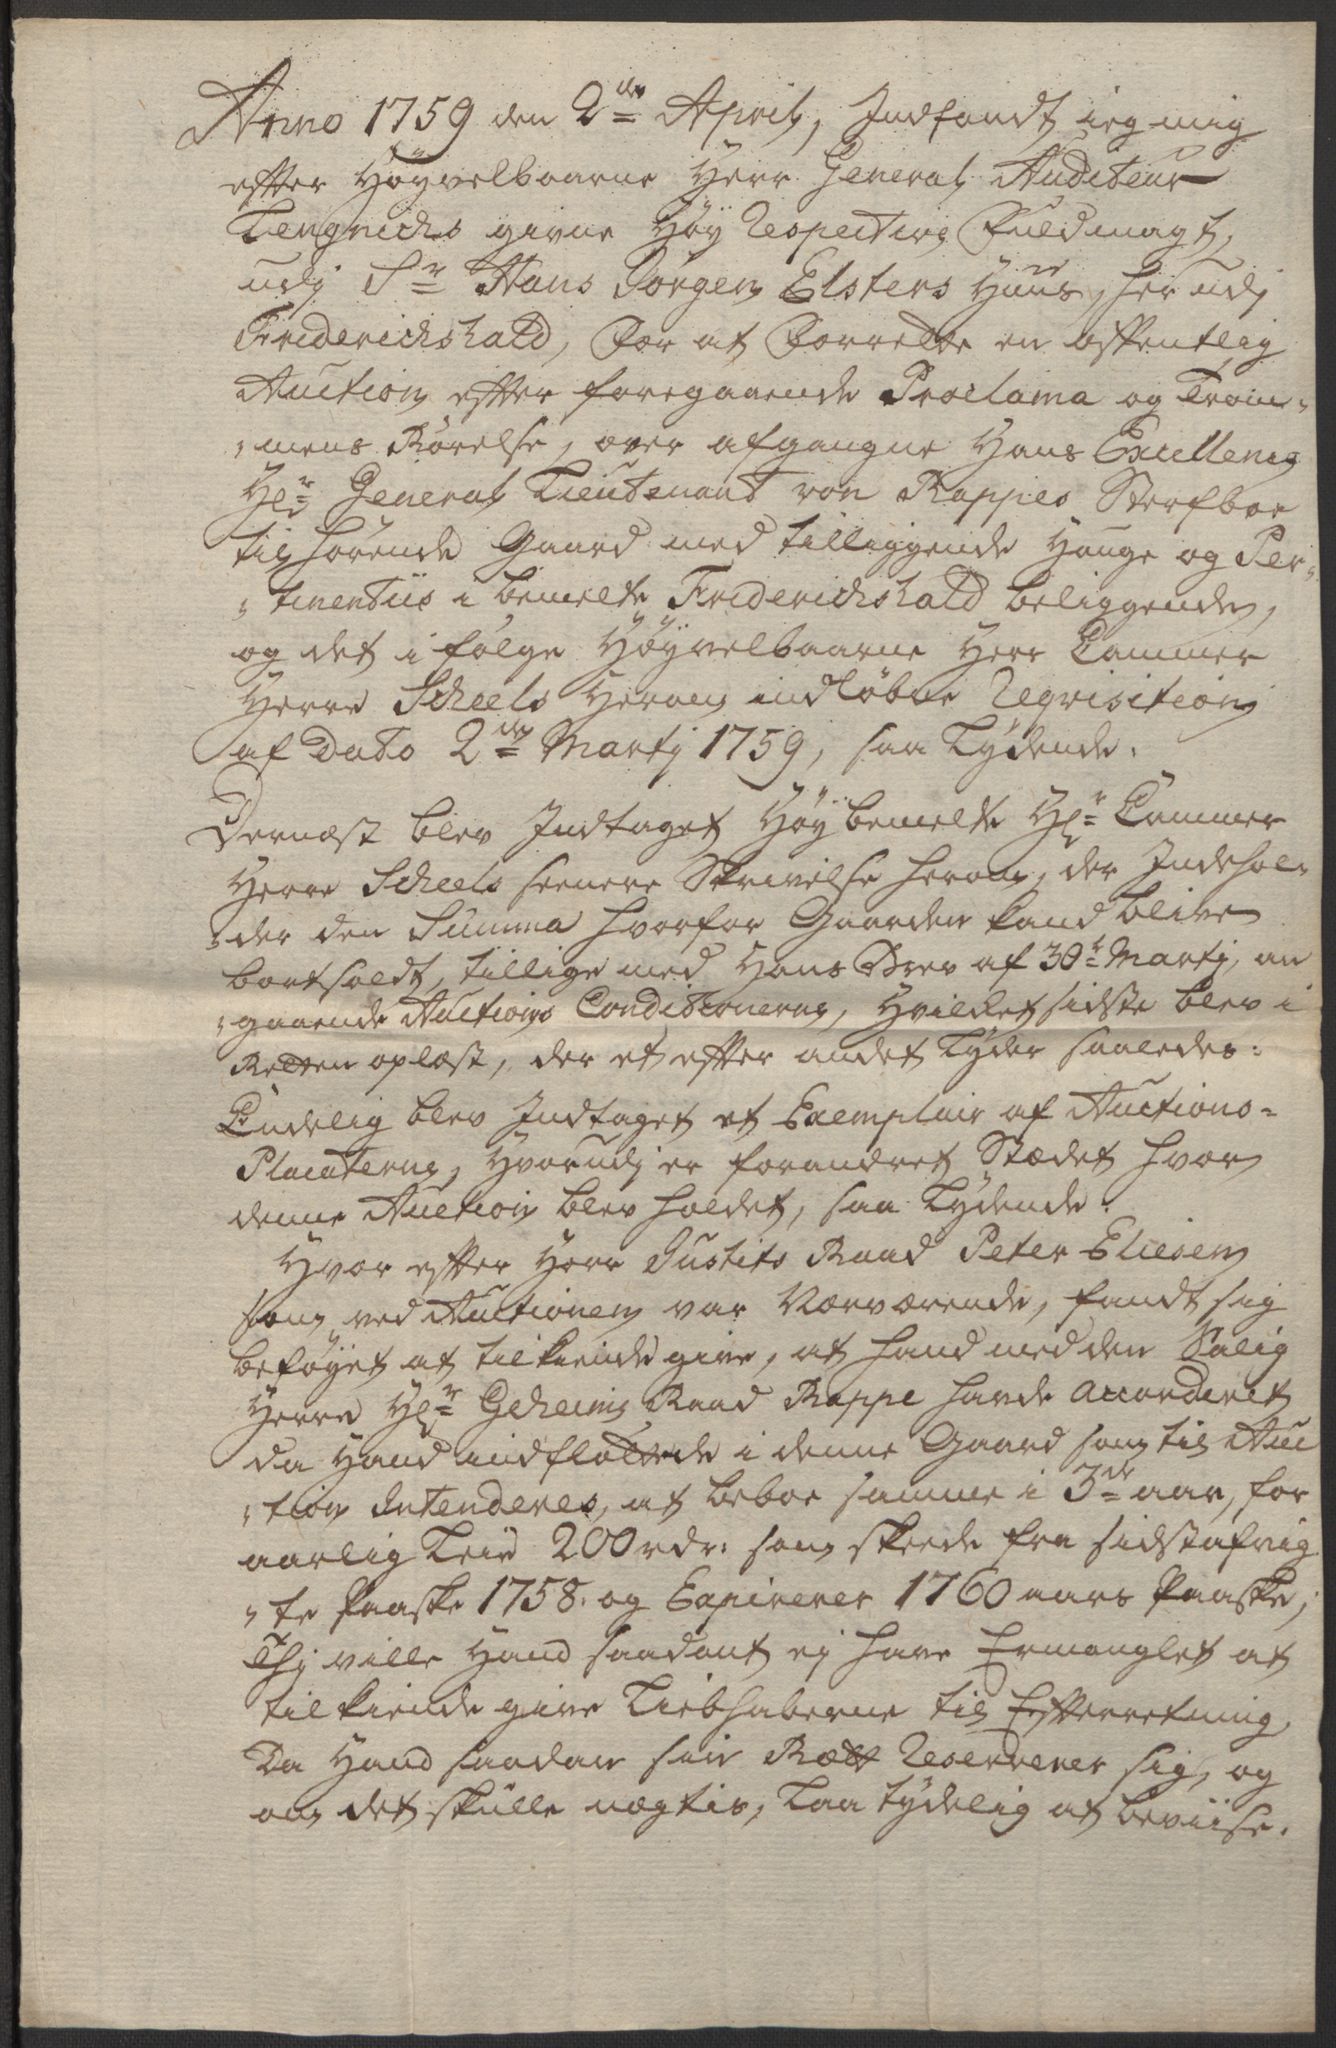 Anno 1759 den 2den April, Indfandt ieg mig
efter Høyvelbaarne Herr General Auditeur
Lengnichs givne Høy Respective Fuldmagt,
udj Sr Hans Jörgen Elsters Huus, her udj
Friderichshald, for at forrette en offentlig
Auction efter foregaaende Proclama og Trom„
„mens Rörelse, over afgangne Hans Excellence
Hr General Lieutenant von Rappes Sterfboe
tilhörende Gaard med tilliggende Hauge og Per„
„tinentiis i bemelte Friderichshald beliggende,
og det i fölge Høyvelbaarne Herr Cammer
Herre Scheels herom indløbne Reqvisition
af Dato 2den Martj 1759, saa Lydende.
Dernæst blev Indtaget Høybemelte Hr Cammer
Herre Scheels seenere Skrivelse herom, der Indehol„
„der den Summa hvorfor Gaarden kand blive
bortsoldt, tillige med Hans Brev af 30te Martj, an
„gaaende Auctions Conditionerne, hvilket sidste blev i
Retten oplæst, der et efter andet Lyder saaledes:
Endelig blev Indtaget et Exemplair af Auctions-
Placaterne, hvorudj er forandret Stædet hvor
denne Auction blev holdet, saa Lydende.
Hvor efter Herr Justits Raad Peter Eliesen
som ved Auctionen var Nærværende, fandt sig
beføyet at tilkiende give, at hand med den Salig
Herre Hr Geheime Raad Rappe havde accorderet
da Hand indflöttede i denne Gaard som til Auc
„tion Intenderes, at beboe samme i 3de aar, for
aarlig Leie 200 rdr. som skeede fra sidstafvig
„te Paaske 1758. og Expirerer 1760 aars Paaske,
Thj ville Hand saadant ej have Ermanglet at
tilkiende give Liebhaberne til Efterretning,
Da Hand saadan sin Rætt Reserverer sig, og
om det skulle nægtis, Laa tydelig at beviise.